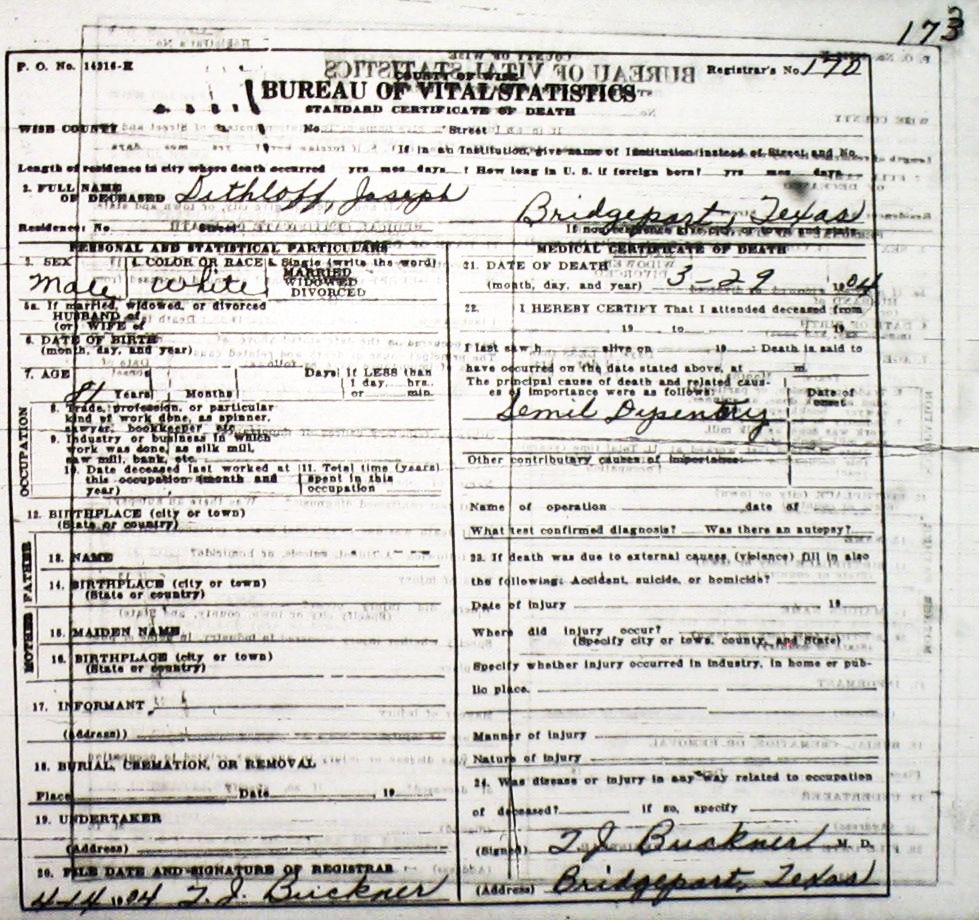 173
P. O. No. 14316-E
COUNTY OF WISE
Registrar's No. 172
BUREAU OF VITAL STATISTICS
STANDARD CERTIFICATE OF DEATH
WISE COUNTY No. Street
If in an Institution, give name of Institution instead of Street and No.
Length of residence in city where death occurred yrs mos days ? How long in U. S. if foreign born? yrs mos days
2. FULL NAME OF DECEASED Dethloff, Joseph
Bridgeport, Texas
Residence: No Street
If non-residence give city, or town and state
PERSONAL AND STATISTICAL PARTICULARS
3. SEX 4. COLOR OR RACE 5. Single (write the word)
MARRIED
WIDOWED
DIVORCED
Male White
5a. If married, widowed, or divorced
HUSBAND of
(or) WIFE of
6. DATE OF BIRTH
(month, day, and year)
7. AGE Years Months Days If LESS than
1 day, hrs.
or min.
8. Trade, profession, or particular
kind of work done, as spinner,
sawyer, bookkeeper etc
9. Industry or business in which
work was done, as silk mill,
saw mill, bank, etc.
10. Date deceased last worked at
this occupation (month and
year)
11. Total time (years)
spent in this
occupation
OCCUPATION
12. BIRTHPLACE (city or town)
(State or country)
FATHER
13. NAME
14. BIRTHPLACE (city or town)
(State or country)
MOTHER
15. MAIDEN NAME
16. BIRTHPLACE (city or town)
(State or country)
17. INFORMANT
(Address)
18. BURIAL, CREMATION, OR REMOVAL
Place Date , 19
19. UNDERTAKER
(Address)
20. FILE DATE AND SIGNATURE OF REGISTRAR
4-14 1904 T. J. Buckner
MEDICAL CERTIFICATE OF DEATH
21. DATE OF DEATH
(month, day, and year) 3-29 1904
22. I HEREBY CERTIFY That I attended deceased from
, 19 to , 19
I last saw h alive on 19 Death is said to
have occurred on the date stated above, at m.
The principal cause of death and related caus-
es of importance were as follows:
Date of
onset
Dysentery
Other contributory causes of importance:
Name of operation date of
What test confirmed diagnosis? Was there an autopsy?
23. If death was due to external causes, (violence) fill in also
the following: Accident, suicide, or homicide?
Date of injury 19
Where did injury occur?
(Specify city or town, county, and State)
Specify whether injury occurred in industry, in home or pub-
lic place.
Manner of injury
Nature of injury
24. Was disease or injury in any way related to occupation
of deceased? If so, specify
(Signed) T J Buckner M. D.
(Address) Bridgeport, Texas